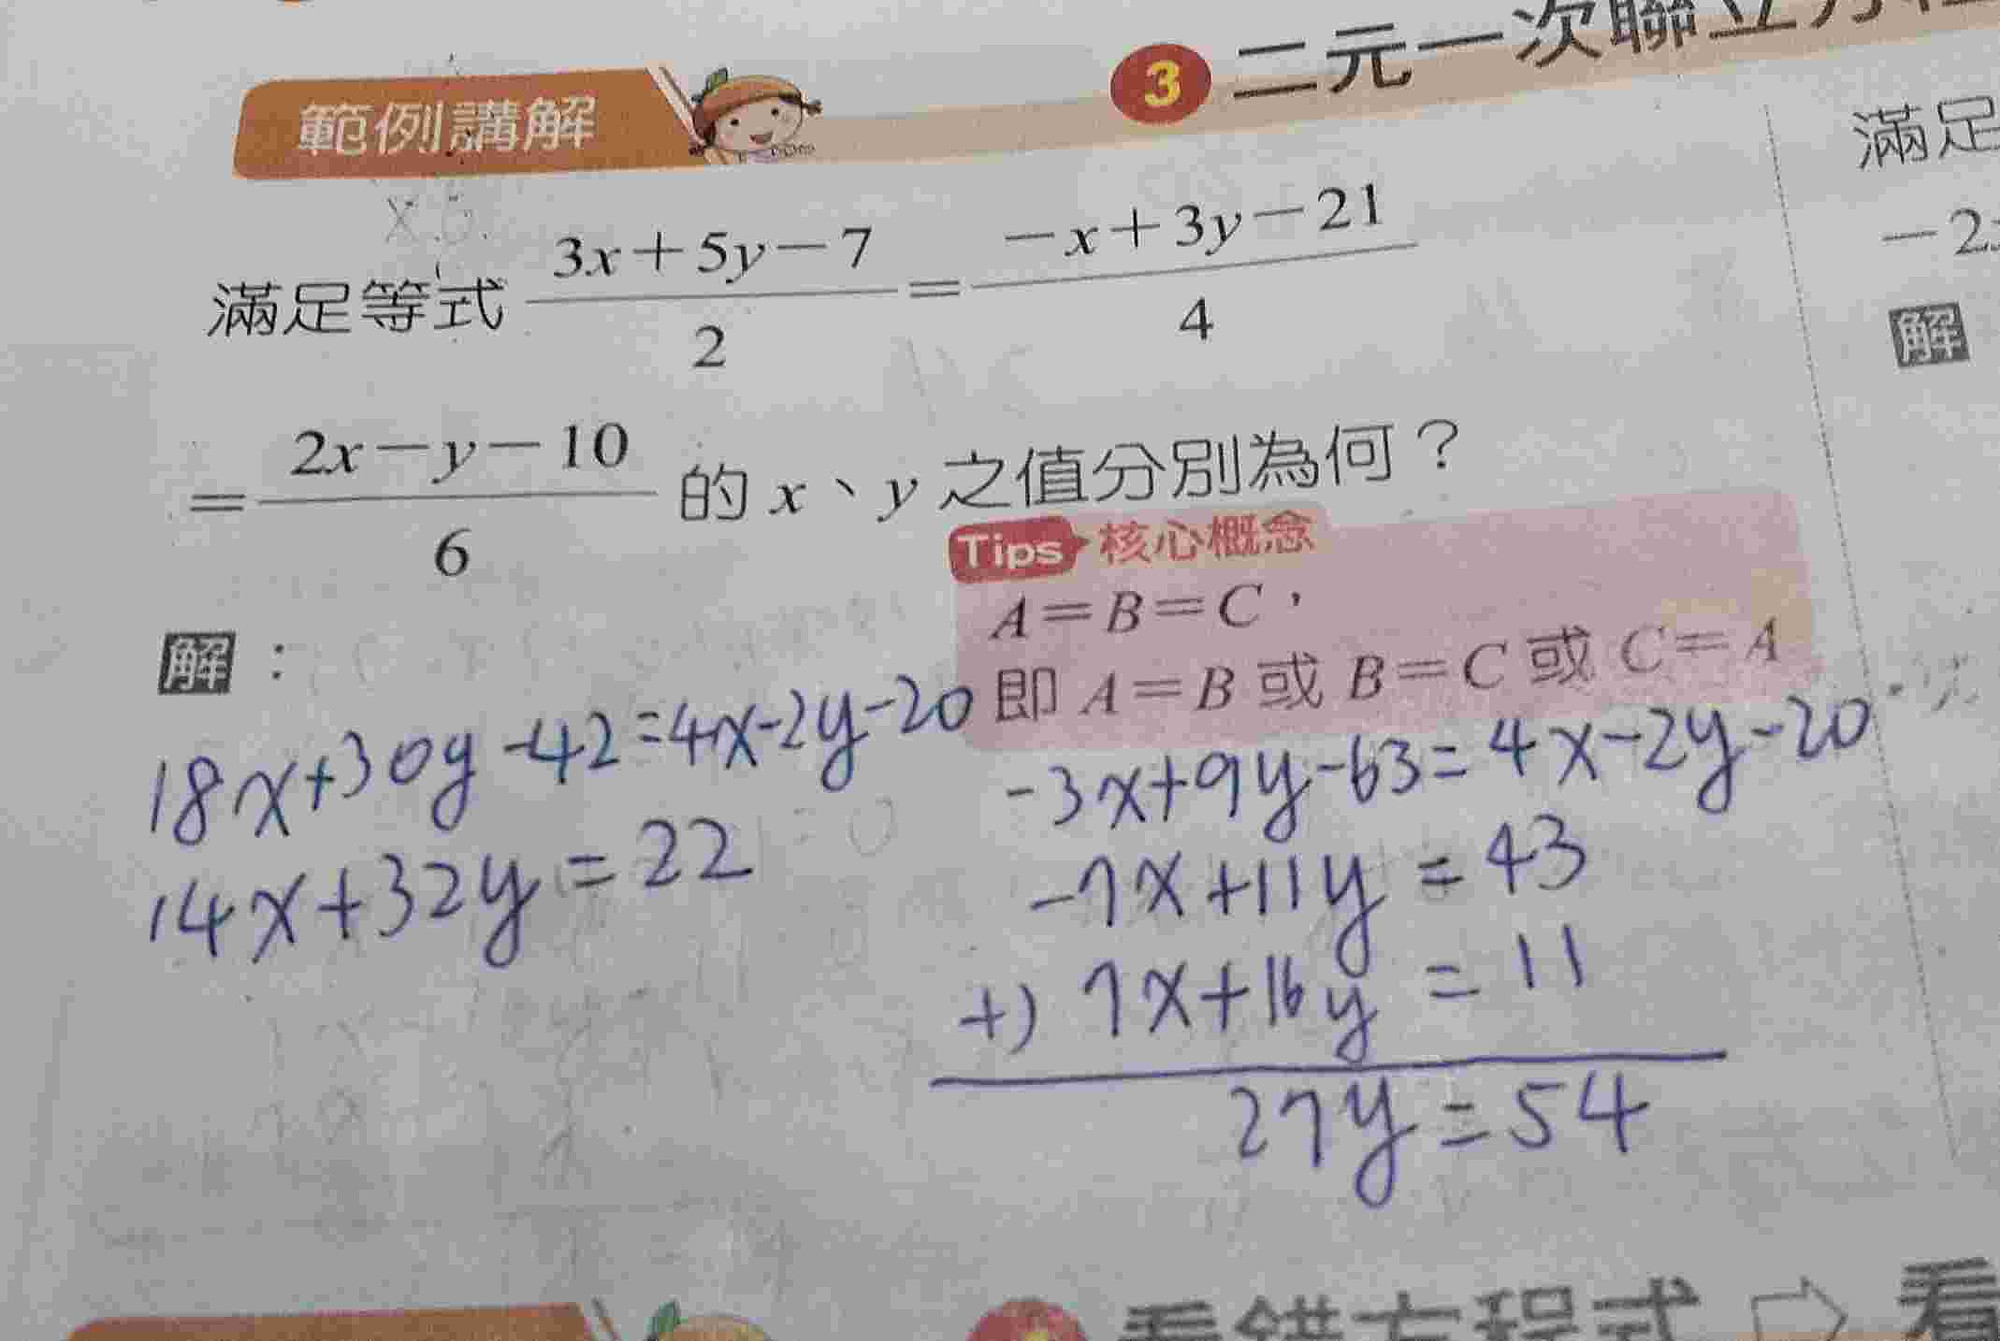 3 二元一次聯立方程
範例講解
×6
滿足等式 \frac{3x+5y-7}{2} = \frac{-x+3y-21}{4}
= \frac{2x-y-10}{6} 的 x、y 之值分別為何？
Tips 核心概念
A=B=C，
即 A=B 或 B=C 或 C=A
解：
18x+30y-42=4x-2y-20
14x+32y=22
-3x+9y-63=4x-2y-20
-7x+11y=43
+) 7x+16y=11
27y=54
滿足
-2x
解
看錯方程式 ⇨ 看